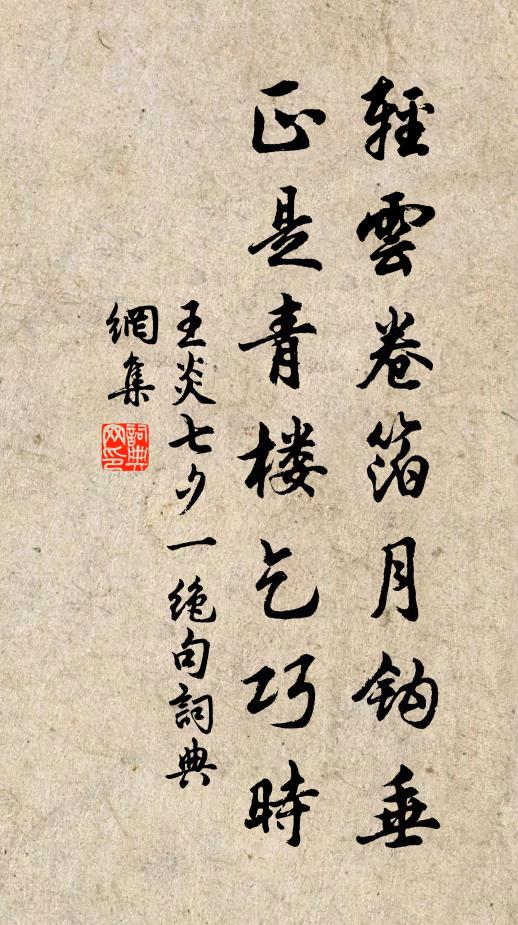 輕雲卷箔月鈎垂
正是青楼乞巧時
王炎七夕一絶句詞典
網集
詞典
网印